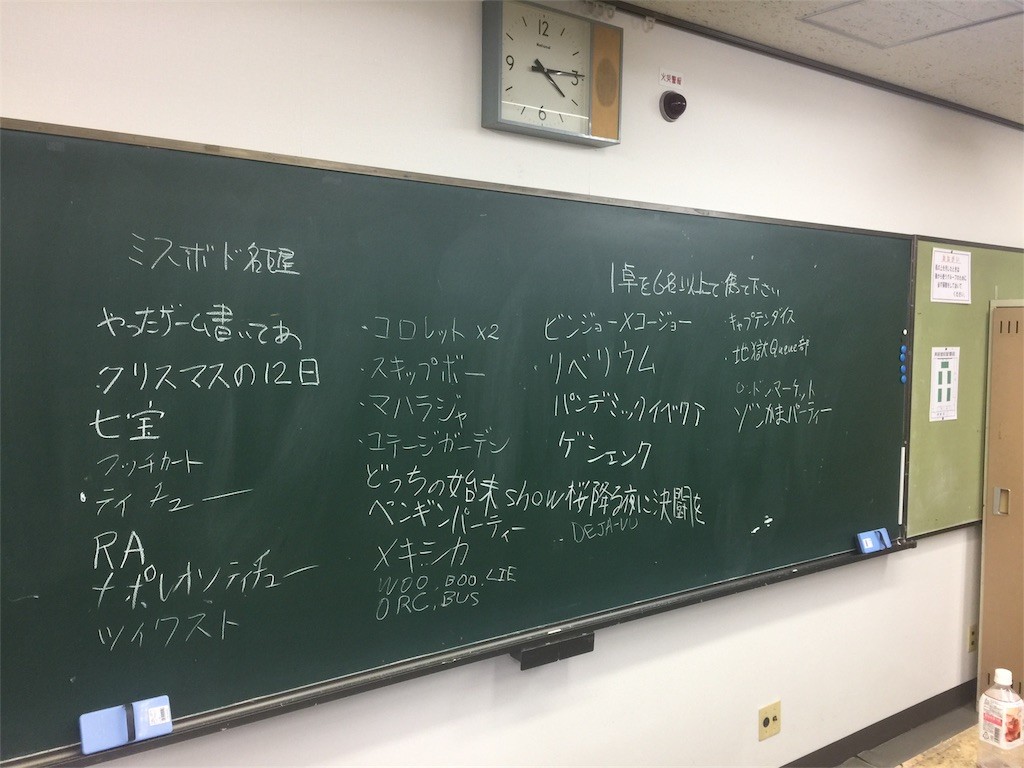 12
3
6
9
National
火災警報
ミスボド名古屋
1卓を6名以上で使って下さい
やったゲーム書いてあ
・クリスマスの12日
七宝
フッチカート
・ティチュー
RA
ナポレオンティチュー
ツイワスト
・コロレット x2
・スキップボー
・マハラジャ
・コテージガーデン
どっちの始末show
ペンギンパーティー
メキシカ
WOO.BOO.LIE
ORC.BUS
ビンジョー×コージョー
リベリウム
パンデミックイベリア
ゲシェンク
桜降る夜に決闘を
DEJA-VU
・キャプテンダイス
・地獄Queue部
ロンドンマーケット
ゾンかまパーティー